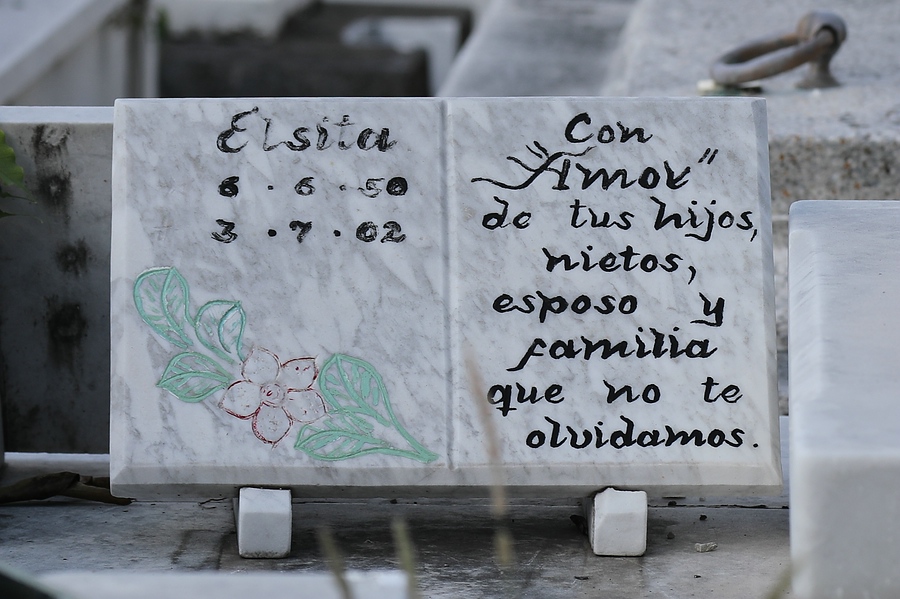 Elsita
6 . 6 . 50
3 . 7 . 02
Con
"Amor"
de tus hijos,
nietos,
esposo y
familia
que no te
olvidamos.